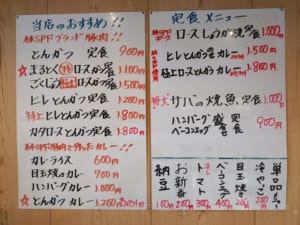 当店のおすすめ!!
林SPFブランド豚肉!!
とんかつ 定食 900円
まるとく ロースかつ定食 1,100円
ごくじょう 極上 ロースかつ定食 1,500円
ヒレとんかつ定食 1,100円
特上ヒレとんかつ定食 1,800円
カタロースとんかつ定食 1,800円
林SPF豚肉で作ったカレー!!
カレーライス 600円
目玉焼のカレー 700円
ハンバーグカレー 1,000円
とんかつカレー 1,200円
定食メニュー
ロースしょうが焼定食 1,000円
ヒレとんかつカレー 1,500円
極上ロースとんかつカレー 1,800円
特大サバの焼魚定食 1,000円
ハンバーグ定食
ベーコンエッグ定食 900円
単品メニュー
冷やっこ 200円
目玉焼き 200円
ベーコンエッグ 400円
トマト 300円
お新香 200円
納豆 100円